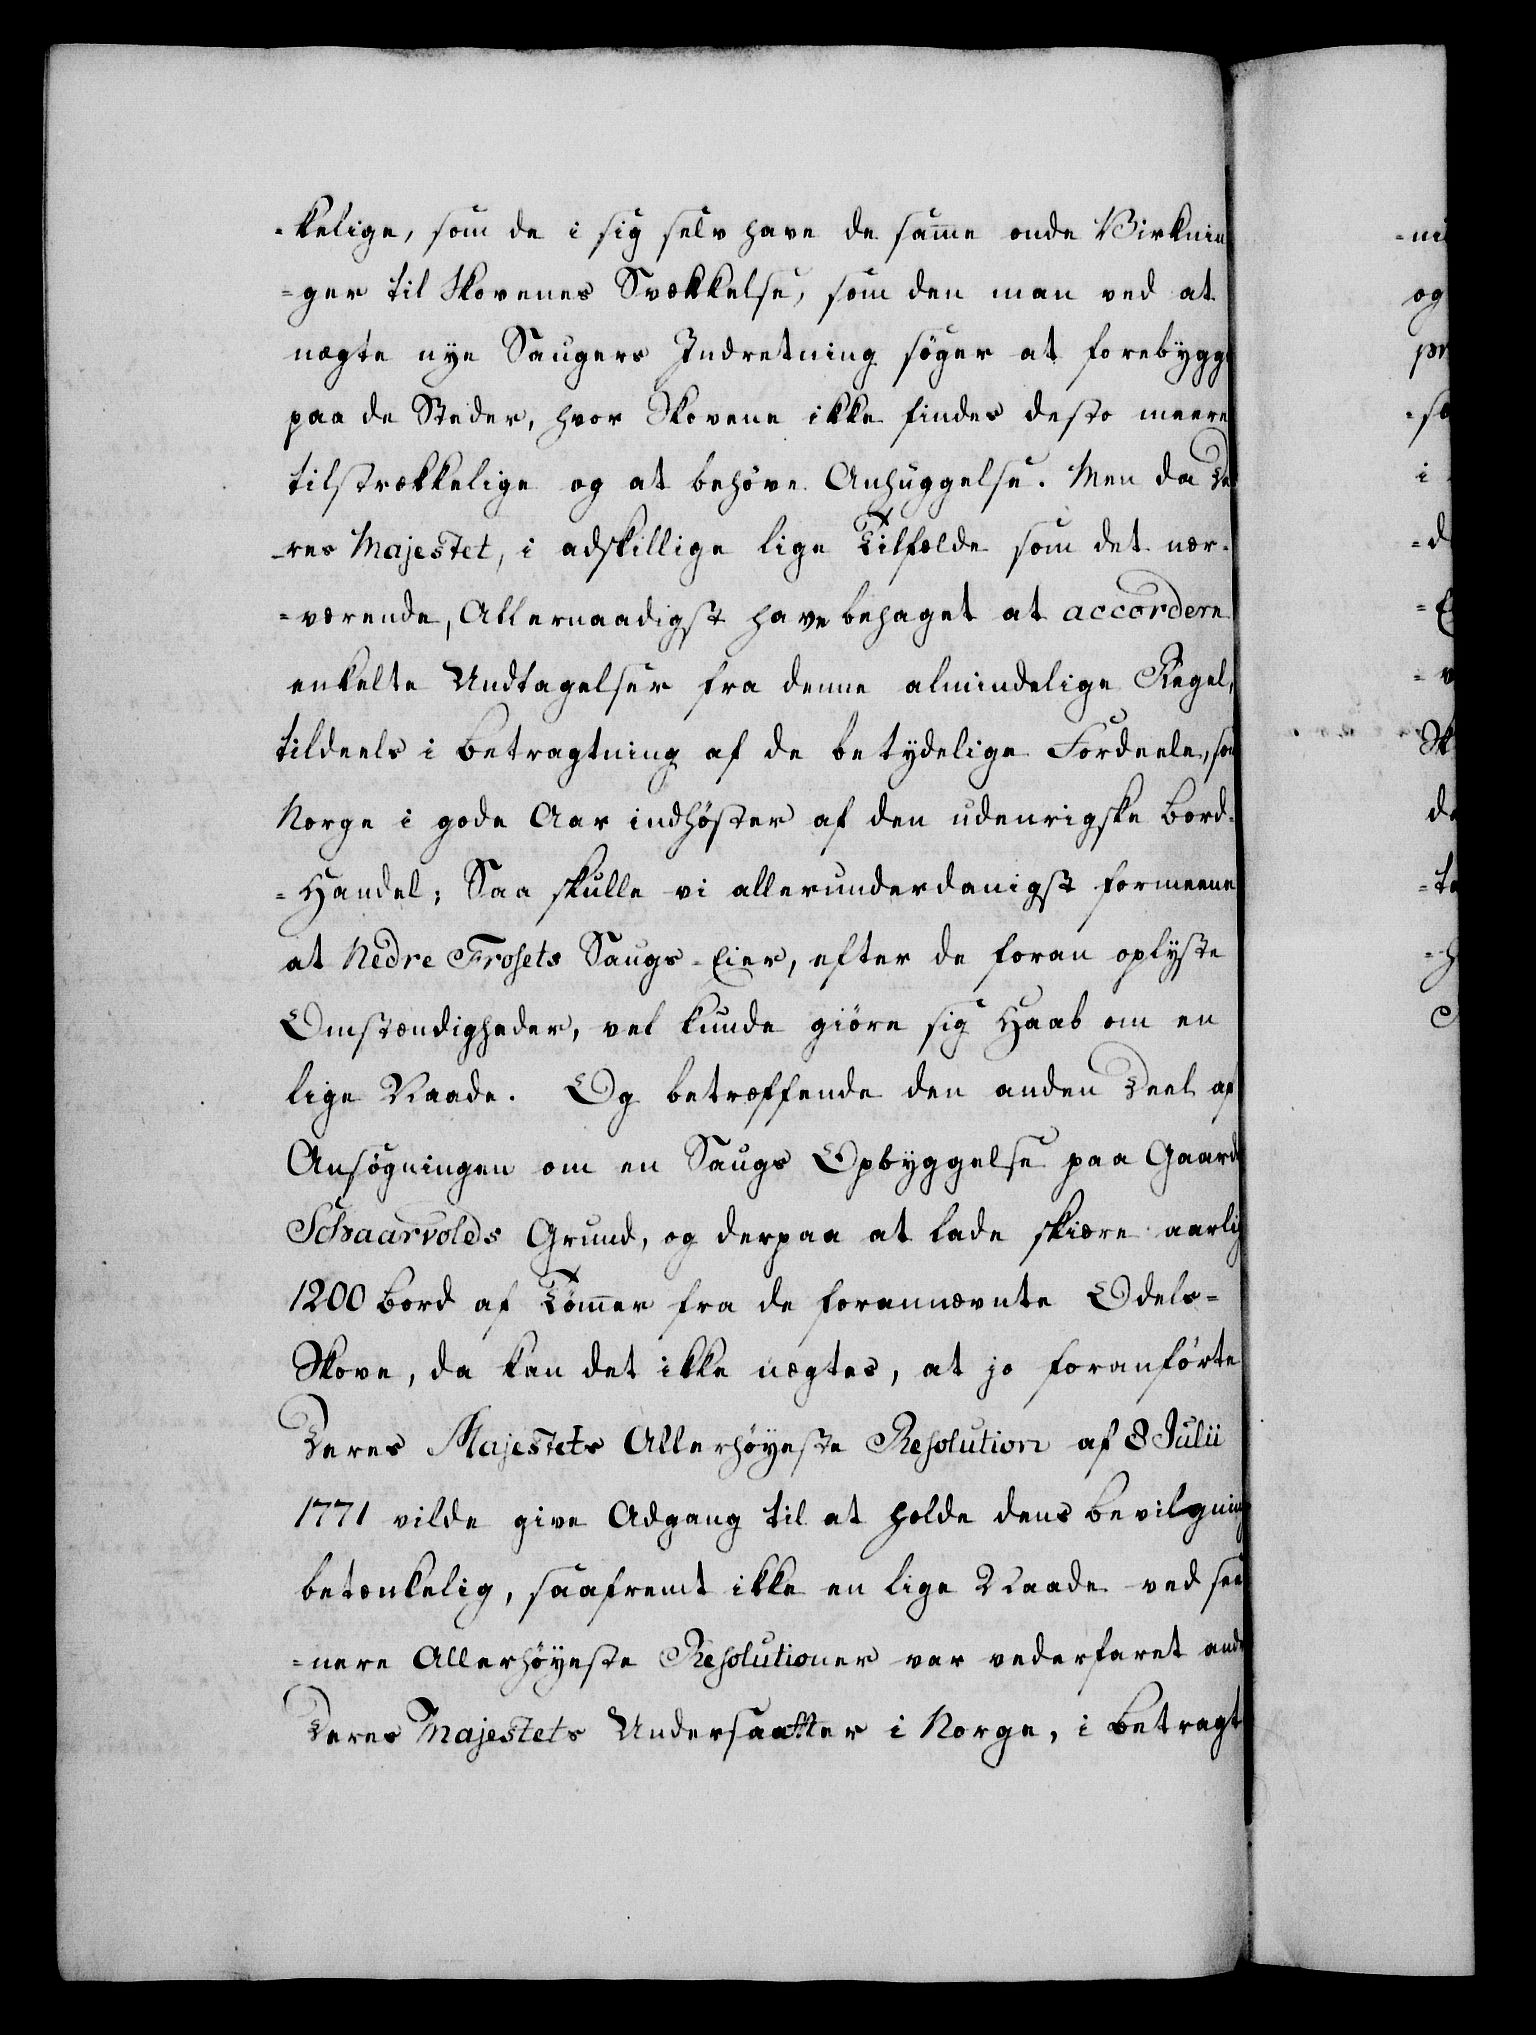 -kelige, som de i sig selv have de samme onde Virknin
-ger til Skovenes Svækkelse, som den man ved at
nægte nye Saugers Indretning søger at forebygge
paa de Steder, hvor Skovene ikke findes desto meere
tilstrækkelige og at behøve Anhuggelse. Men da De
-res Majestet, i adskillige lige Tilfælde som det nær-
-værende, Allernaadigst have behaget at accordere
enkelte Undtagelser fra denne almindelige Regel,
tildeels i Betragtning af de betydelige Fordeele, som
Norge i gode Aar indhøster af den udenrigske Bord-
-Handel; Saa skulle vi allerunderdanigst formeene
at Nedre Frosets Saugs-Eier, efter de foran oplyste
Omstændigheder, vel kunde giøre sig Haab om en
lige Naade. Og betræffende den anden Deel af
Ansøgningen om en Saugs Opbyggelse paa Gaard
Schaarvolds Grund, og derpaa at lade skiære aarlig
1200 Bord af Tømmer fra de forannævnte Odels-
Skove, da kan det ikke nægtes, at jo foranførte
Deres Majestets Allerhøyeste Resolution af 8 Julii
1771 vilde give Adgang til at holde dens Bevilgning
betænkelig, saafremt ikke en lige Naade ved see
-nere Allerhøyeste Resolutioner var vederfaret andre
Deres Majestets Undersaatter i Norge, i Betragt